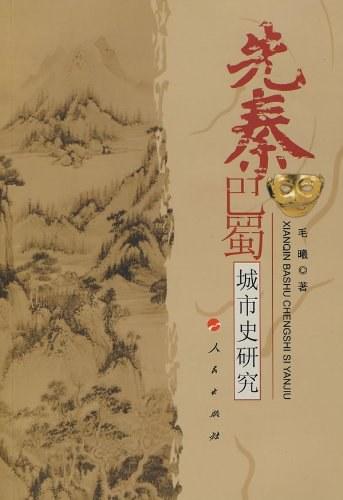 先秦
巴蜀
城市史研究
毛曦◎著
XIANQIN BASHU CHENGSHI SI YANJIU
人民出版社